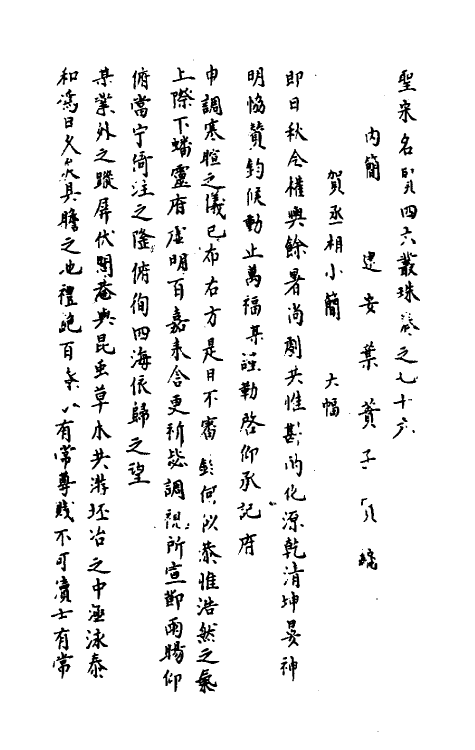 聖宋名賢四六叢珠卷之七十六
內簡 建安葉蕡子實編
賀丞相小簡 大幅
即日秋令權輿餘暑尚劇共惟斟酌化源乾清坤晏神
明協贊鈞候動止萬福某謹勤啓仰承記府
申調寒暄之儀已布右方是日不審 何似恭惟浩然之氣
上際下蟠靈府虛明百嘉來舍更祈毖調視所宣節雨暘仰
俯當宁倚注之隆俯徇四海依歸之望
某業外之蹤屏伏閭菴與昆虫草木共游坯冶之中涵泳泰
和為日久矣具瞻之地禮絕百寮 有常尊賤不可瀆士有常